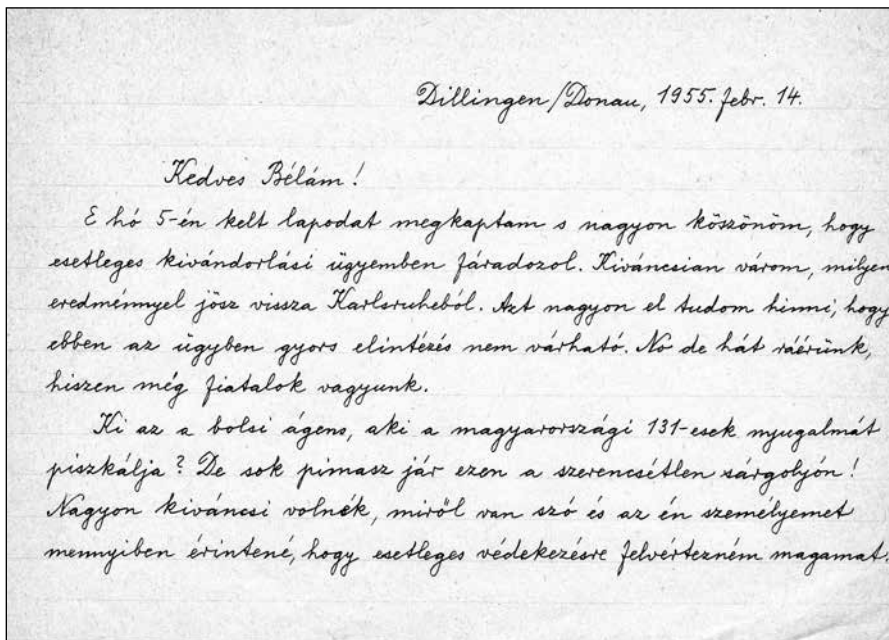 Dillingen/Donau, 1955. febr. 14.
Kedves Bélám!
E hó 5-én kelt lapodat megkaptam s nagyon köszönöm, hogy
esetleges kivándorlási ügyemben fáradozol. Kiváncsian várom, milyen
eredménnyel jösz vissza Karlsruheból. Azt nagyon el tudom hinni, hogy
ebben az ügyben gyors elintézés nem várható. No de hát ráérünk,
hiszen még fiatalok vagyunk.
Ki az a bolsi ágens, aki a magyarországi 131-esek nyugalmát
piszkálja? De sok pimasz jár ezen a szerencsétlen sárgolyón!
Nagyon kiváncsi volnék, miről van szó és az én személyemet
mennyiben érintené, hogy esetleges védekezésre felvértezném magamat.